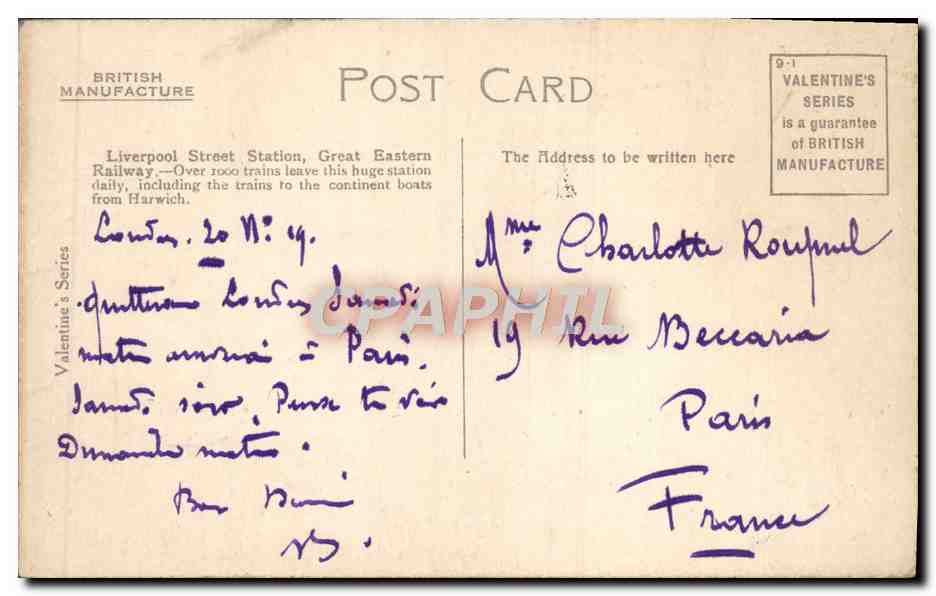 BRITISH
MANUFACTURE
POST CARD
9-1
VALENTINE'S
SERIES
is a guarantee
of BRITISH
MANUFACTURE
Liverpool Street Station, Great Eastern
Railway.—Over 1000 trains leave this huge station
daily, including the trains to the continent boats
from Harwich.
The Address to be written here
Valentine's Series
Londres. 20 Nᵒ. 19.
quitterai Londres Samedi
matin à Paris.
Samedi soir. Pense te voir
Dimanche matin.
Bon
Mme. Charlotte
19 Rue Beccaria
Paris
France
CPAPHIL